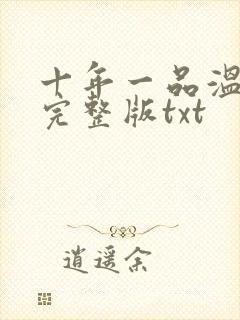 十年一品温
完整版txt
逍遥余